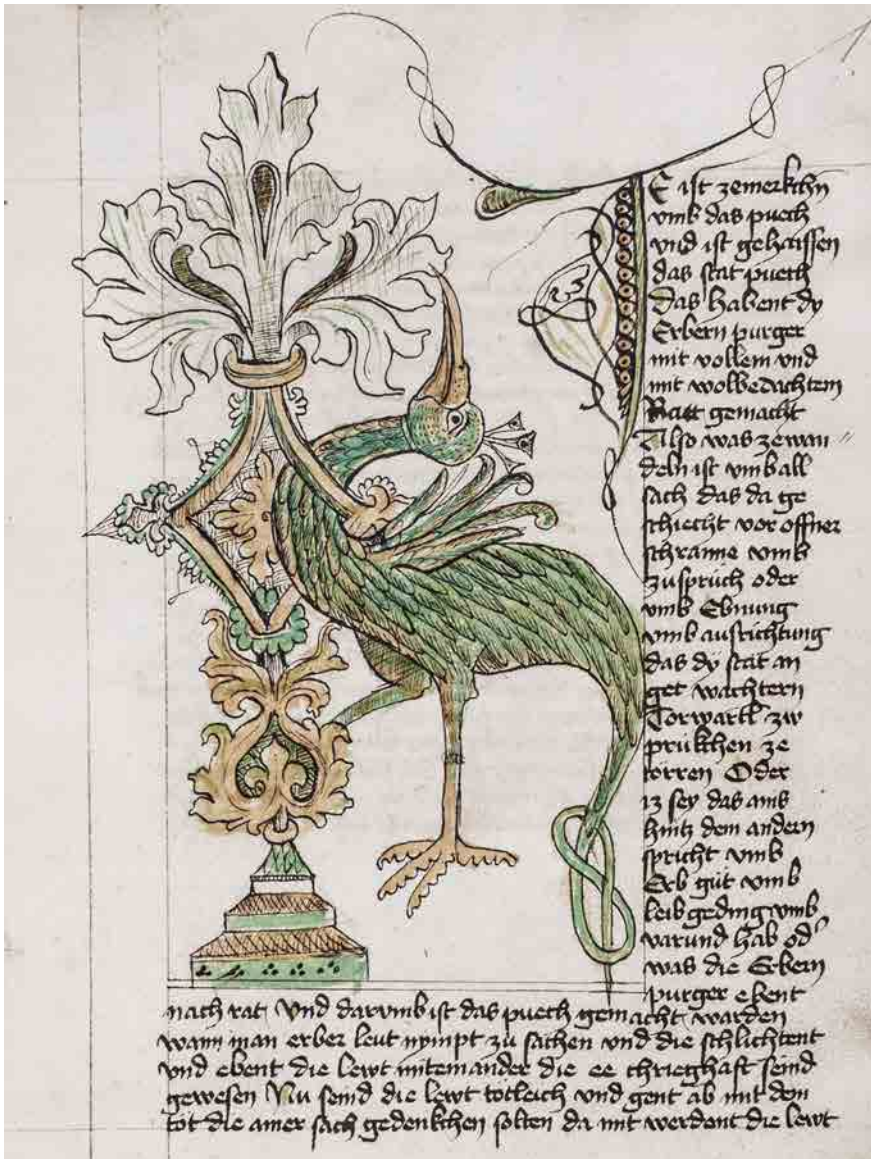 E ist zemerkchn
vmb das puech
vnd ist gehaissen
das stat puech
das habent dy
Erbern purger
mit vollem vnd
mit wolbedachtem
Ratt gemacht
Also was ze wan
deln ist vmb all
sach das da ge
schiecht vor offner
schranne vmb
zuspruch oder
vmb Ebnung
vmb ausrichtung
das dy stat an
get wachtern
Torwartl zw
prukchen ze
torren Oder
iz sey das ains
hintz dem andern
spricht vmb
Erb gut vmb
leibgeding vmb
varund hab od
was die Erbern
purger ebent
nach rat Vnd darvmb ist das puech gemacht warden
wann man erber leut nympt zu sachen vnd die schlichtent
vnd ebent die lewt miteinander die ee chrieghaft seind
gewesen Nu seind die lewt totleich vnd gent ab mit dem
tot die ainer sach gedenkchen solten da mit werdent die lewt